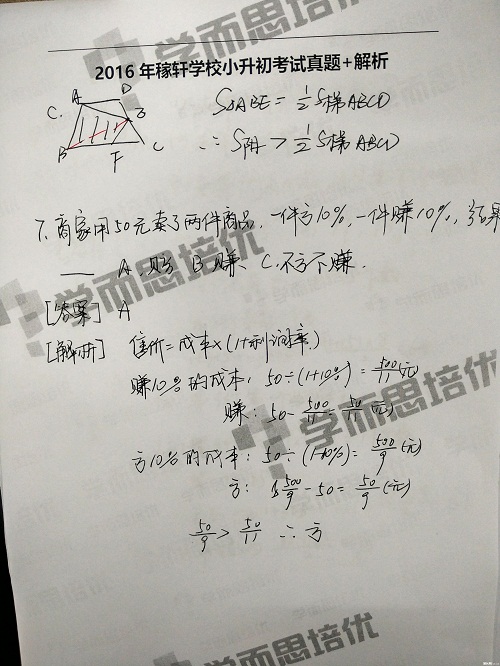 学而思培优
2016年稼轩学校小升初考试真题+解析
C. A D E B F C
S△ABE = 1/2 S梯ABCD
∴ S阴 > 1/2 S梯ABCD
7. 商家用50元卖了两件商品,一件亏10%,一件赚10%,结果
___ A. 亏 B. 赚、 C. 不亏不赚.
[答案] A
[解析] 售价=成本×(1+利润率)
赚10%的成本: 50÷(1+10%) = 500/11 (元)
赚: 50 - 500/11 = 50/11 (元)
亏10%的成本: 50÷(1-10%) = 500/9 (元)
亏: 500/9 - 50 = 50/9 (元)
50/9 > 50/11 ∴ 亏
学而思培优
学而思培优
学而思培优